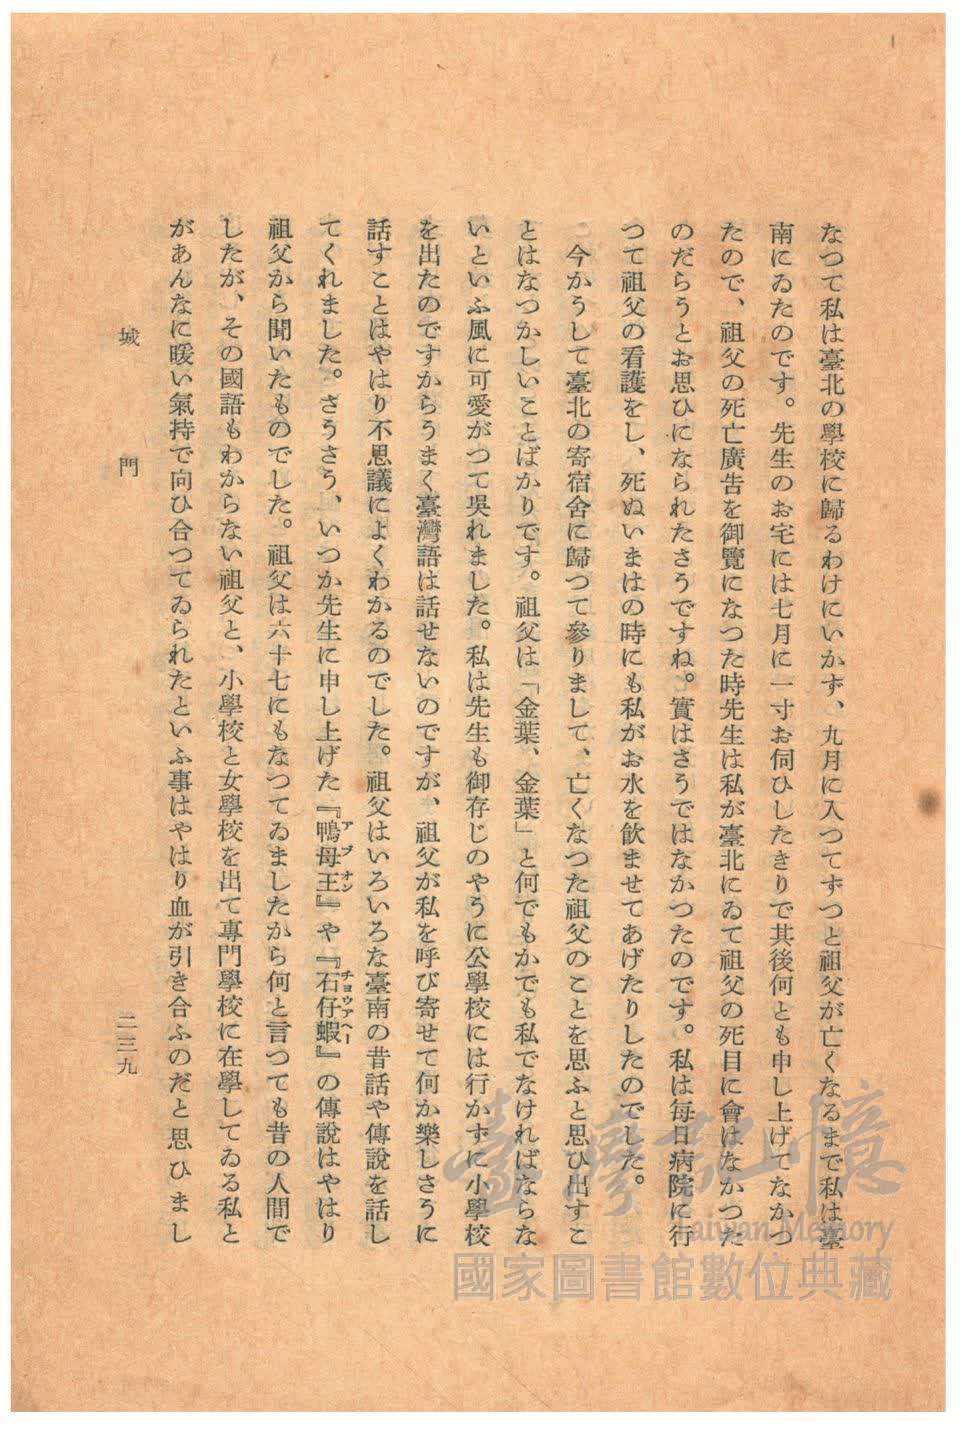 なつて私は臺北の學校に歸るわけにいかず、九月に入つてずつと祖父が亡くなるまで私は臺
南にゐたのです。先生のお宅には七月に一寸お伺ひしたきりで其後何とも申し上げてなかつ
たので、祖父の死亡廣告を御覽になつた時先生は私が臺北にゐて祖父の死目に會はなかつた
のだらうとお思ひになられたさうですね。實はさうではなかつたのです。私は毎日病院に行
つて祖父の看護をし、死ぬいまはの時にも私がお水を飮ませてあげたりしたのでした。
今かうして臺北の寄宿舍に歸つて參りまして、亡くなつた祖父のことを思ふと思ひ出すこ
とはなつかしいことばかりです。祖父は「金葉、金葉」と何でもかでも私でなければならな
いといふ風に可愛がつて吳れました。私は先生も御存じのやうに公學校には行かずに小學校
を出たのですからうまく臺灣語は話せないのですが、祖父が私を呼び寄せて何か樂しさうに
話すことはやはり不思議によくわかるのでした。祖父はいろいろな臺南の昔話や傳說を話し
てくれました。さうさう、いつか先生に申し上げた『鴨母王』や『石仔蝦』の傳說はやはり
アブオン
チョウアヘー
祖父から聞いたものでした。祖父は六十七にもなつてゐましたから何と言つても昔の人間で
したが、その國語もわからない祖父と、小學校と女學校を出て專門學校に在學してゐる私と
があんなに暖い氣持で向ひ合つてゐられたといふ事はやはり血が引き合ふのだと思ひまし
城門
二三九
臺灣記憶
Taiwan Memory
國家圖書館數位典藏